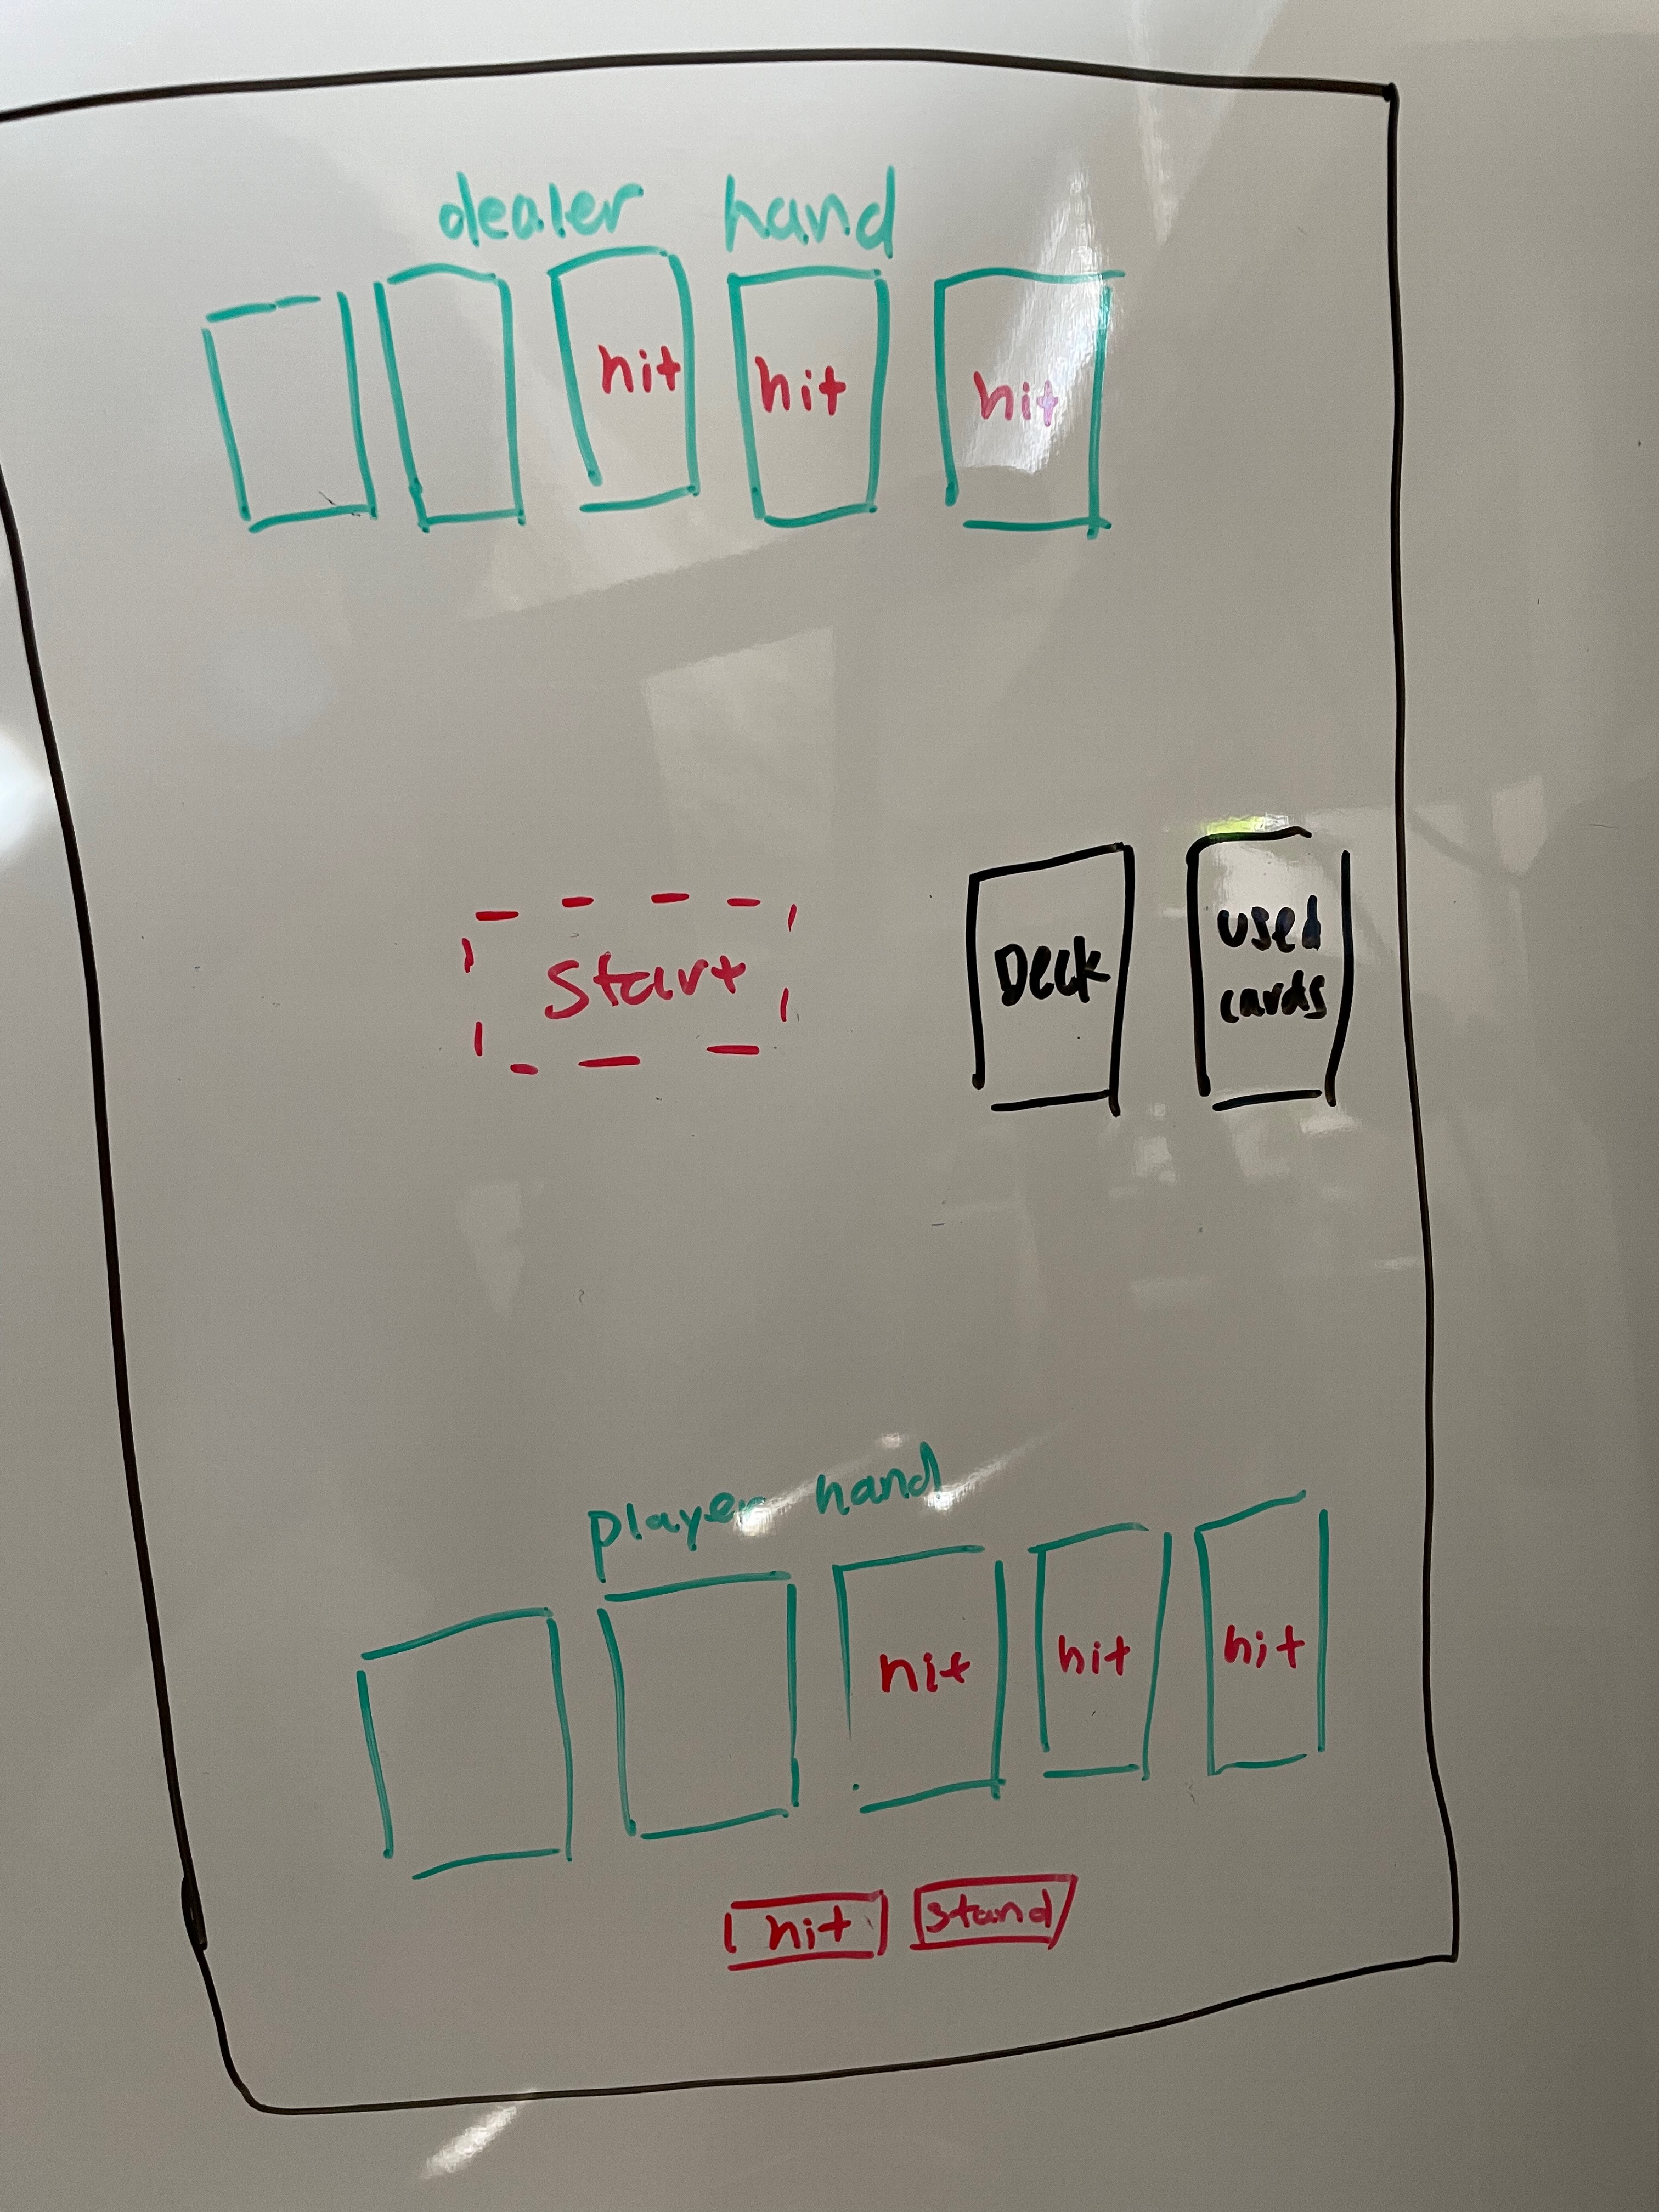 dealer hand
hit hit hit
start
Deck
used
cards
player hand
hit hit hit
hit stand